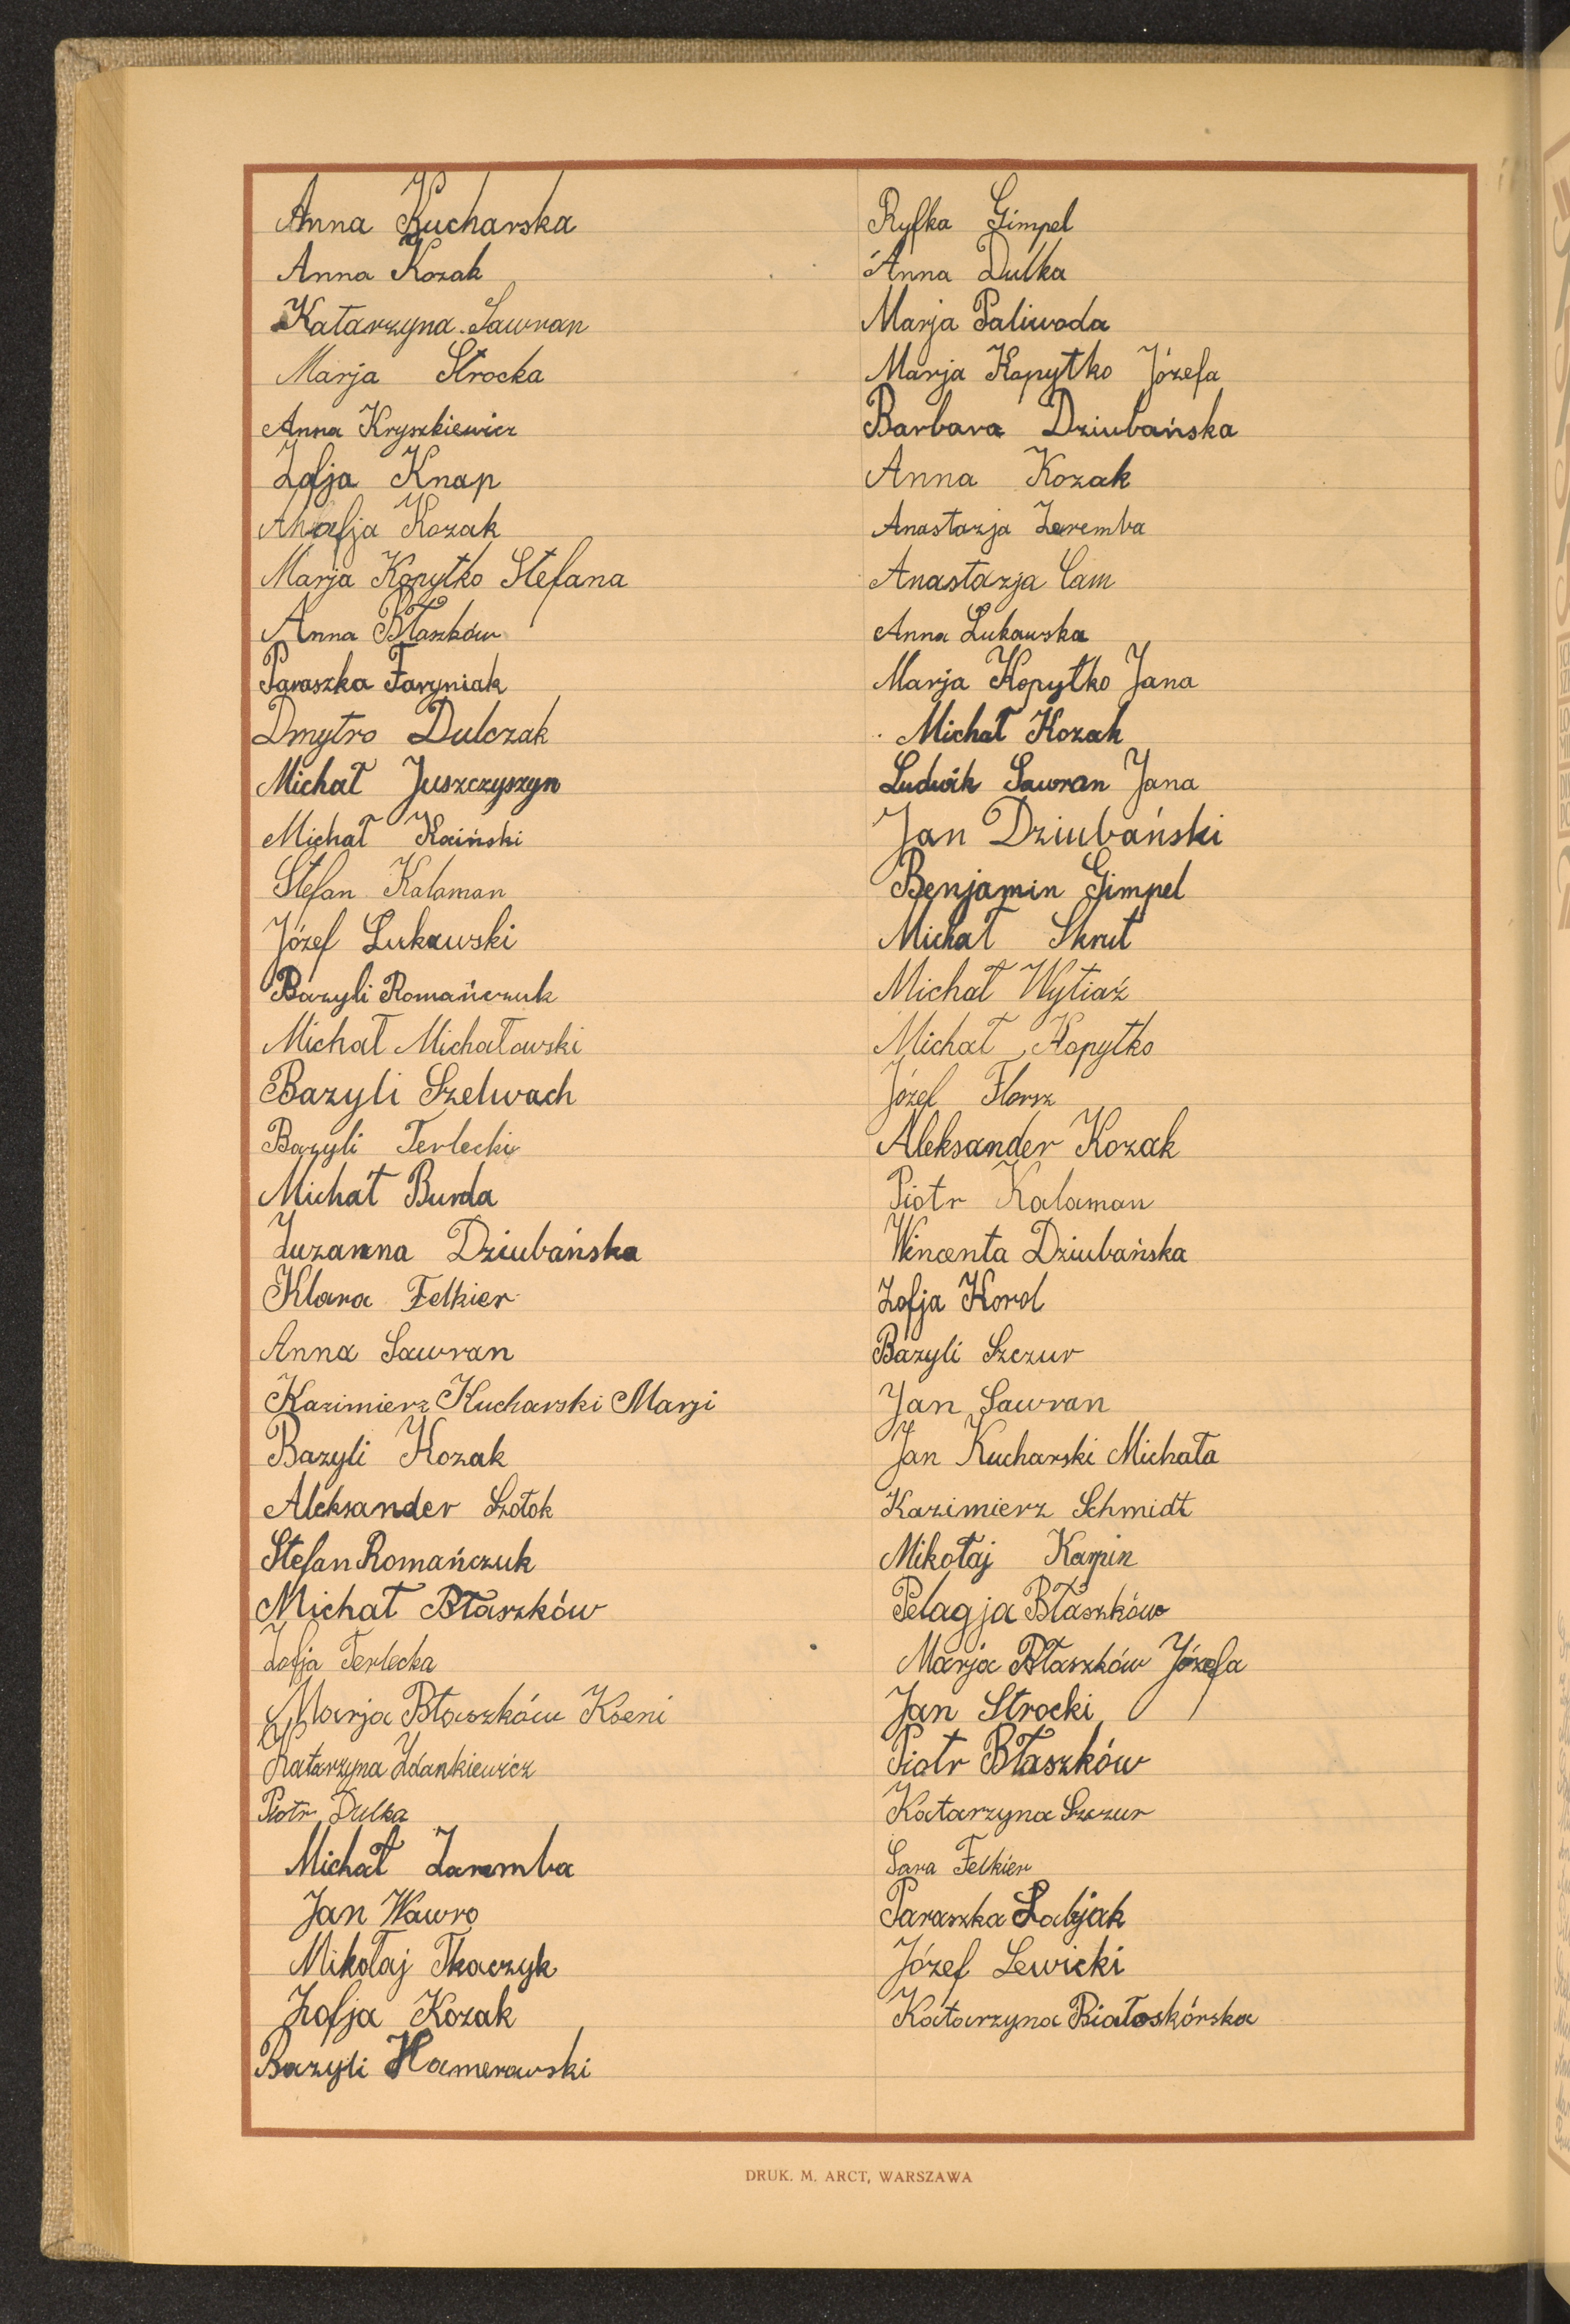 Anna Kucharska
Anna Kozak
Katarzyna Sawran
Marja Strocka
Anna Kryszkiewicz
Zofja Knap
Kozak
Marja Kopytko Stefana
Anna Błaszków
Paraszka Faryniak
Dmytro Dulczak
Michał Juszczyszyn
Michał Kaiński
Stefan Kalaman
Józef Łukawski
Bazyli Romańczuk
Michał Michałowski
Bazyli Szelwach
Bazyli Terlecki
Michał Burda
Zuzanna Dziubańska
Klara Felkier
Anna Sawran
Kazimierz Kucharski Marji
Bazyli Kozak
Aleksander Szotok
Stefan Romańczuk
Michał Błaszków
Zofja Terlecka
Marja Błaszków Kseni
Katarzyna Zdankiewicz
Piotr Dulka
Michał Zaremba
Jan Wawro
Mikołaj Tkaczyk
Zofja Kozak
Bazyli Hamerowski
Ryfka Gimpel
Anna Dulka
Marja Paliwoda
Marja Kopytko Józefa
Barbara Dziubańska
Anna Kozak
Anastazja Zaremba
Anastazja Cam
Anna Łukawska
Marja Kopytko Jana
Michał Kozak
Ludwik Sawran Jana
Jan Dziubański
Benjamin Gimpel
Michał Skrut
Michał Wytiaź
Michał Kopytko
Józef Florsz
Aleksander Kozak
Piotr Kalaman
Wincenta Dziubańska
Zofja Korol
Bazyli Szczur
Jan Sawran
Jan Kucharski Michała
Kazimierz Schmidt
Mikołaj Karpin
Pelagja Błaszków
Marja Błaszków Józefa
Jan Strocki
Piotr Błaszków
Katarzyna Szczur
Sara Felkier
Paraszka Łabjak
Józef Lewicki
Katarzyna Białoskórska
DRUK. M. ARCT, WARSZAWA